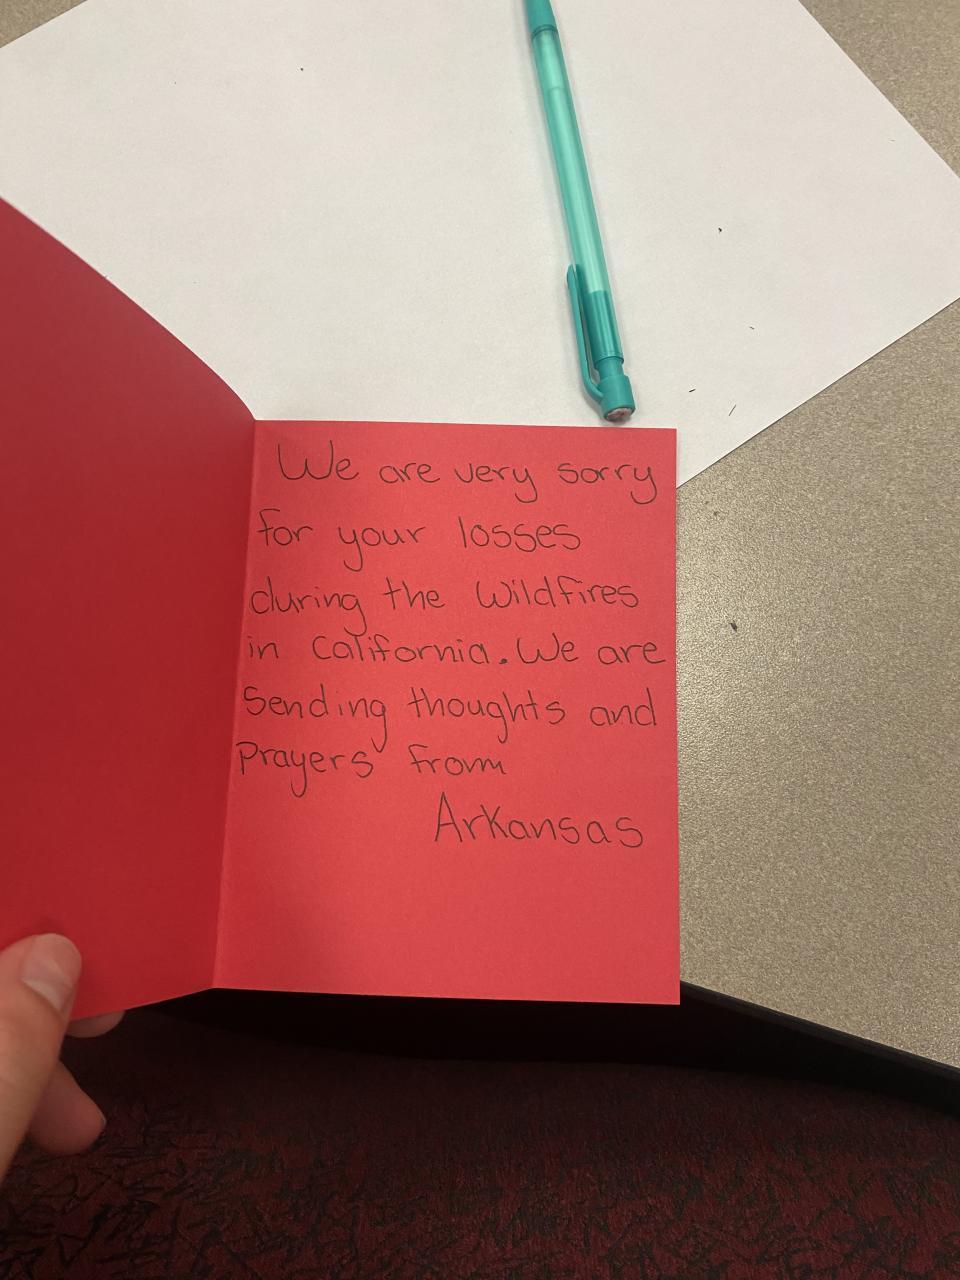 We are very sorry
for your losses
during the Wildfires
in California. We are
Sending thoughts and
Prayers from
Arkansas